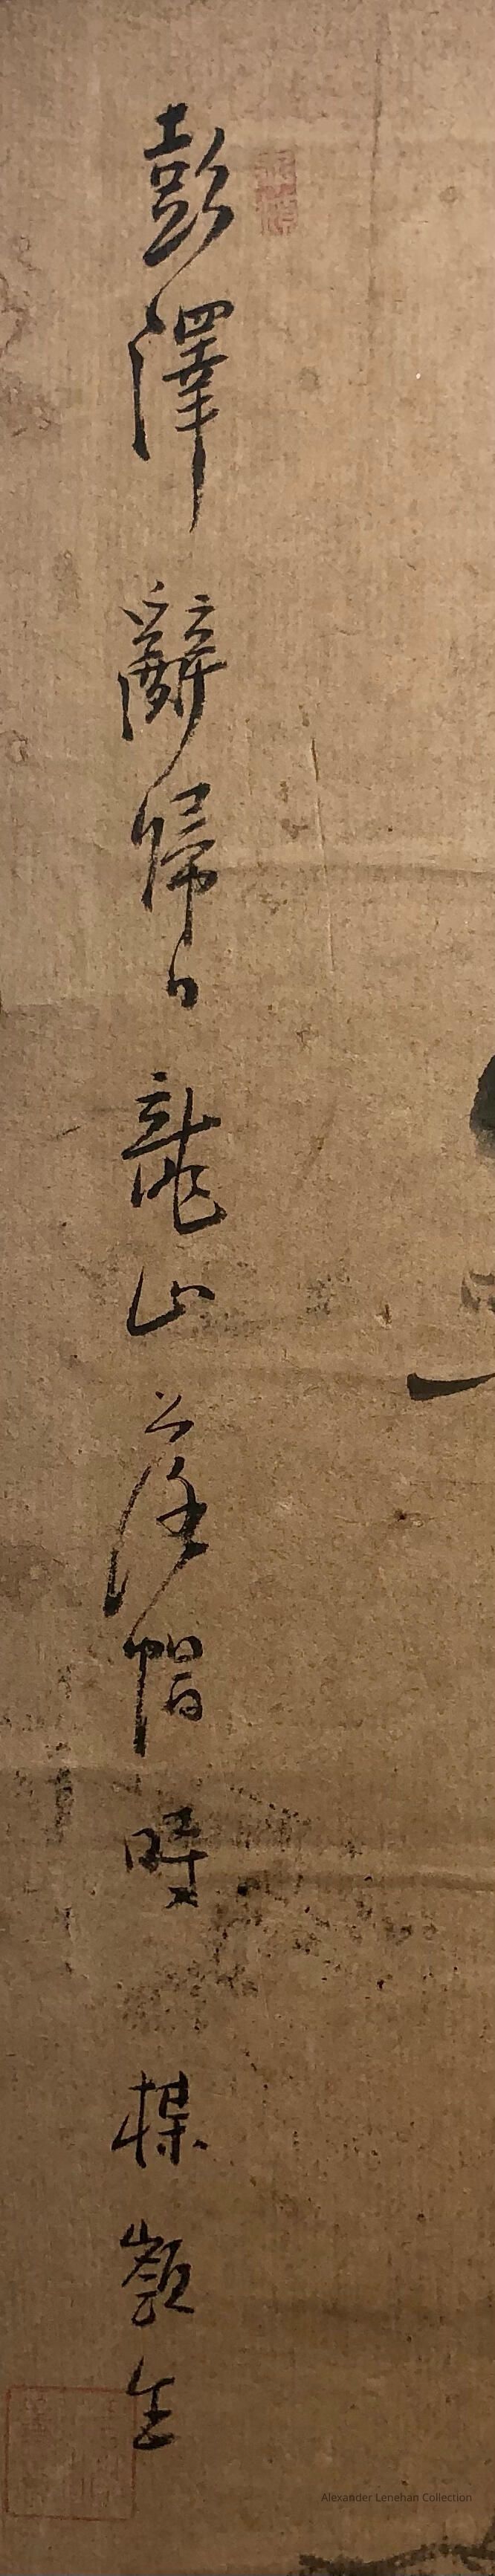 彭澤辭歸日龍山落帽時 楳嶺生
Alexander Lenehan Collection